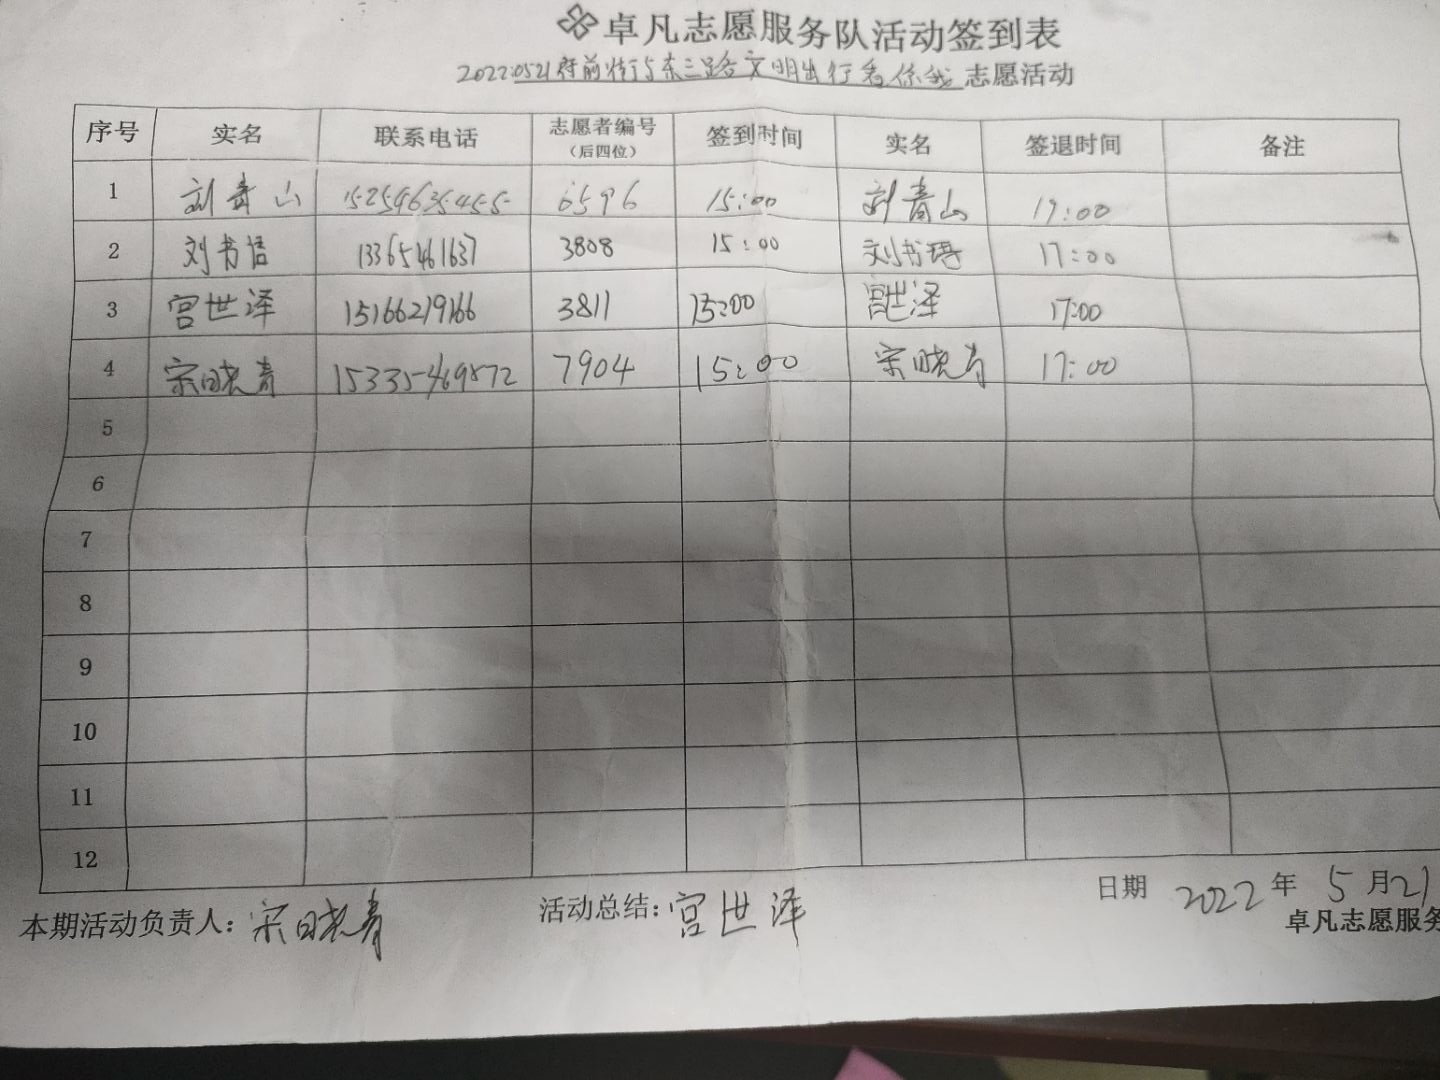 卓凡志愿服务队活动签到表
20220521府前街与东三路文明出行看你我 志愿活动
序号 实名 联系电话 志愿者编号（后四位） 签到时间 实名 签退时间 备注
1 刘青山 15254635455 6596 15:00 刘青山 17:00
2 刘书语 13365461637 3808 15:00 刘书语 17:00
3 宫世泽 15166219166 3811 15:00 宫世泽 17:00
4 宋晓青 15335469872 7904 15:00 宋晓青 17:00
5
6
7
8
9
10
11
12
本期活动负责人：宋晓青 活动总结：宫世泽 日期 2022年5月21
卓凡志愿服务